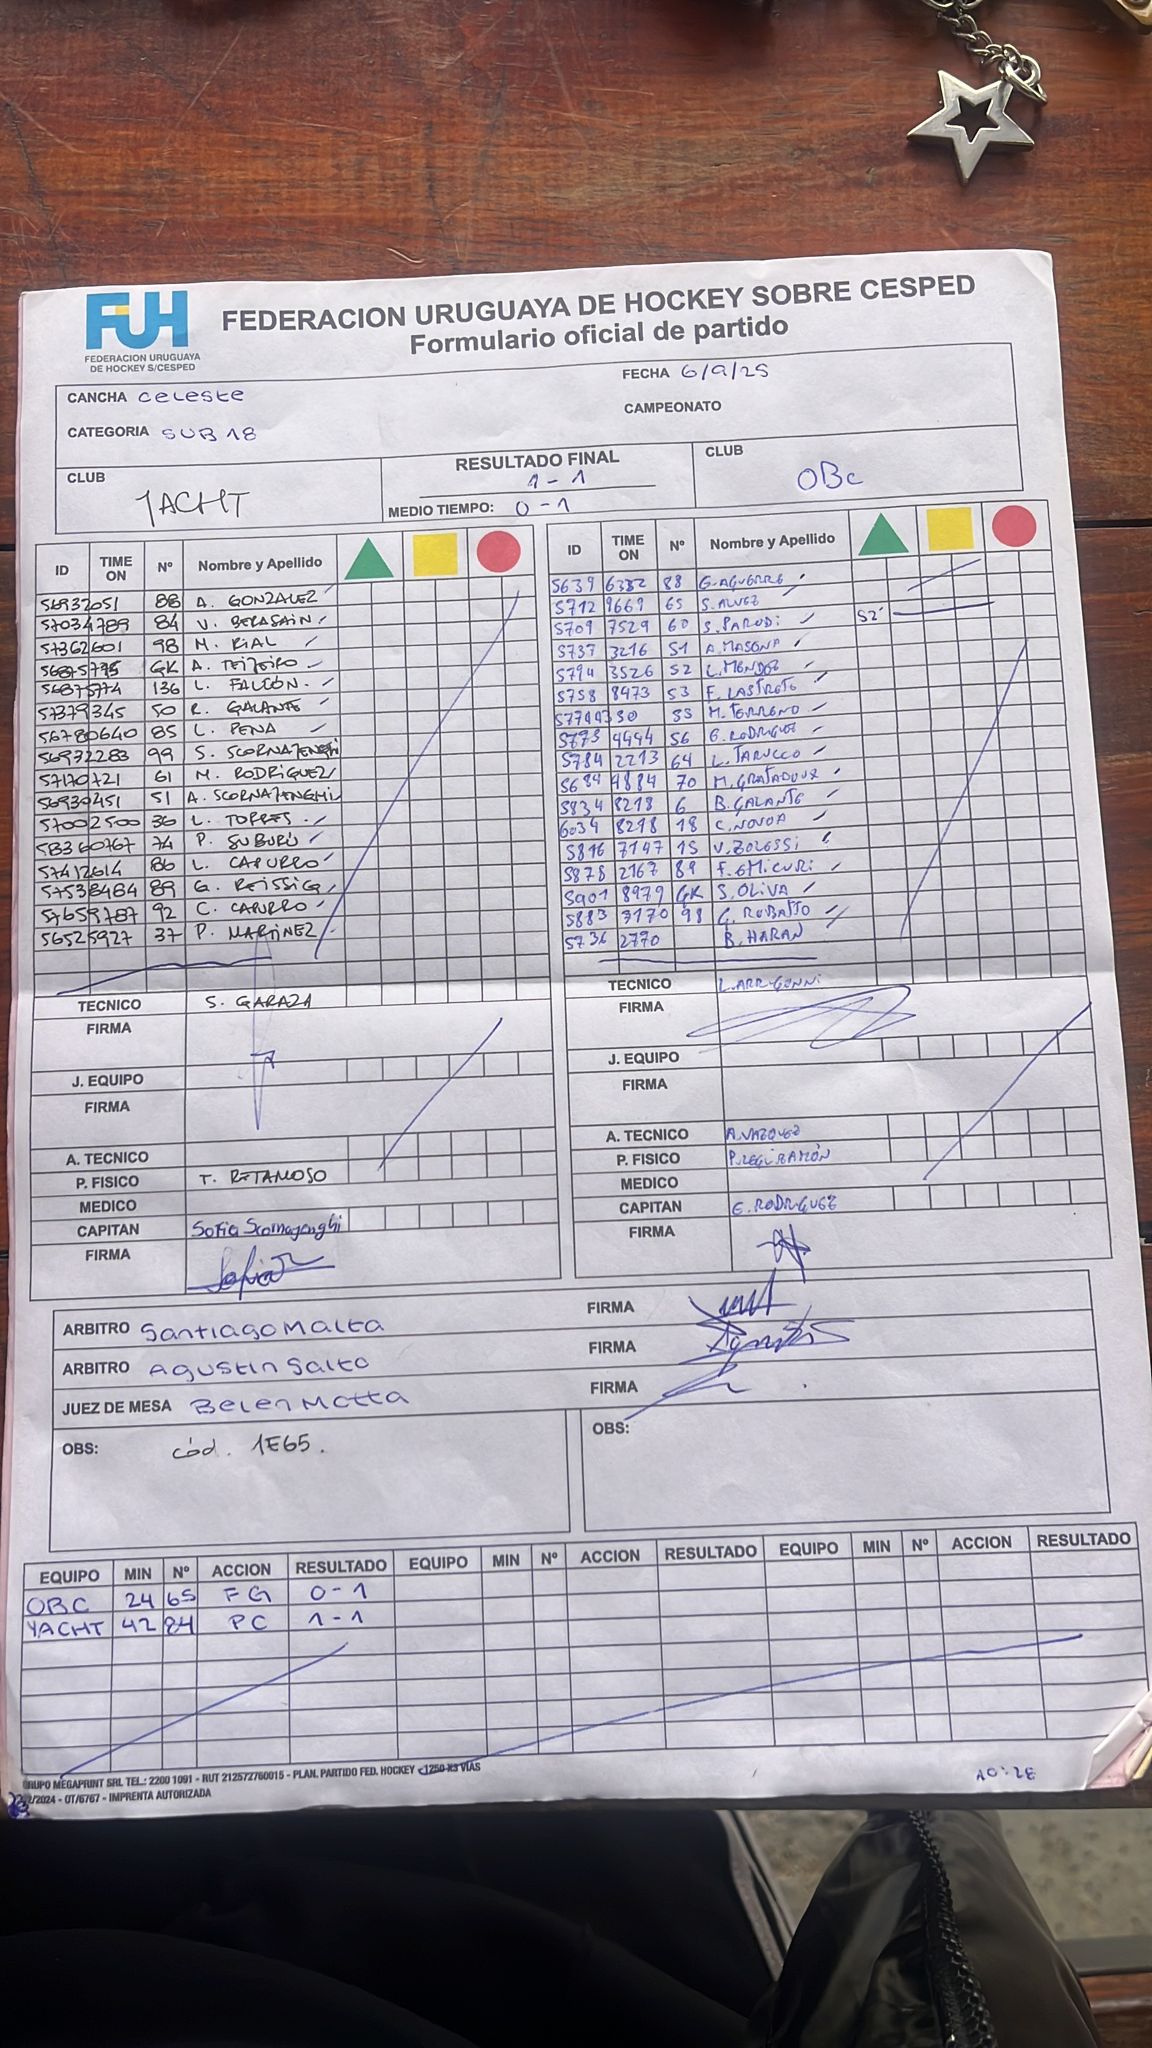 FUH
FEDERACION URUGUAYA
DE HOCKEY S/CESPED
FEDERACION URUGUAYA DE HOCKEY SOBRE CESPED
Formulario oficial de partido
CANCHA celeste
FECHA 6/9/25
CATEGORIA SUB 18
CAMPEONATO
CLUB YACHT
RESULTADO FINAL
1 - 1
MEDIO TIEMPO: 0 - 1
CLUB OBC
ID TIME ON Nº Nombre y Apellido
56932051 88 A. GONZALEZ
57034789 84 V. BERASAIN
57362601 98 M. RIAL
56875775 GK A. TEIJEIRO
56875774 136 L. FALCÓN
57379345 50 R. GALANTE
56780640 85 L. PENA
56932283 99 S. SCORNAJENGHI
57170721 61 M. RODRIGUEZ
56930451 51 A. SCORNAJENGHI
57002500 36 L. TORRES
58360767 74 P. SUBURÚ
57412614 86 L. CAPURRO
57538484 89 G. REISSIG
57659787 92 C. CAPURRO
56525927 37 P. MARTINEZ
TECNICO S. GARAZA
FIRMA
J. EQUIPO
FIRMA
A. TECNICO
P. FISICO T. RETAMOSO
MEDICO
CAPITAN Sofia Scornajenghi
FIRMA
ID TIME ON Nº Nombre y Apellido
5639 6332 88 G. AGUERRE
5712 9669 65 S. ALVEZ
5709 7529 60 S. PARODI 52'
5737 3216 51 A. MASONA
5794 3526 52 L. MENDEZ
5758 8473 53 F. LASTRETO
5774 4730 33 M. TERRENO
5773 4444 56 E. RODRIGUEZ
5784 2213 64 L. TARUCCO
5684 4884 70 M. GRATADOUX
5834 8218 6 B. GALANTE
6034 8218 18 C. NOVOA
5816 7147 15 V. BOLESSI
5878 2167 89 F. EMICURI
5901 8979 GK S. OLIVA
5883 3170 98 G. ROBATTO
5736 2770 B. HARAN
TECNICO L. ARRIGONNI
FIRMA
J. EQUIPO
FIRMA
A. TECNICO A. VAZQUEZ
P. FISICO P. REGI RAMÓN
MEDICO
CAPITAN E. RODRIGUEZ
FIRMA
ARBITRO Santiago Malta FIRMA
ARBITRO Agustin Salto FIRMA
JUEZ DE MESA Belen Motta FIRMA
OBS: cód. 1E65.
OBS:
EQUIPO MIN Nº ACCION RESULTADO EQUIPO MIN Nº ACCION RESULTADO EQUIPO MIN Nº ACCION RESULTADO
OBC 24 65 FG 0-1
YACHT 42 84 PC 1-1
GRUPO MEGAPRINT SRL TEL.: 2200 1091 - RUT 212572760015 - PLAN. PARTIDO FED. HOCKEY 1250 X3 VIAS
/2024 - OT/6767 - IMPRENTA AUTORIZADA